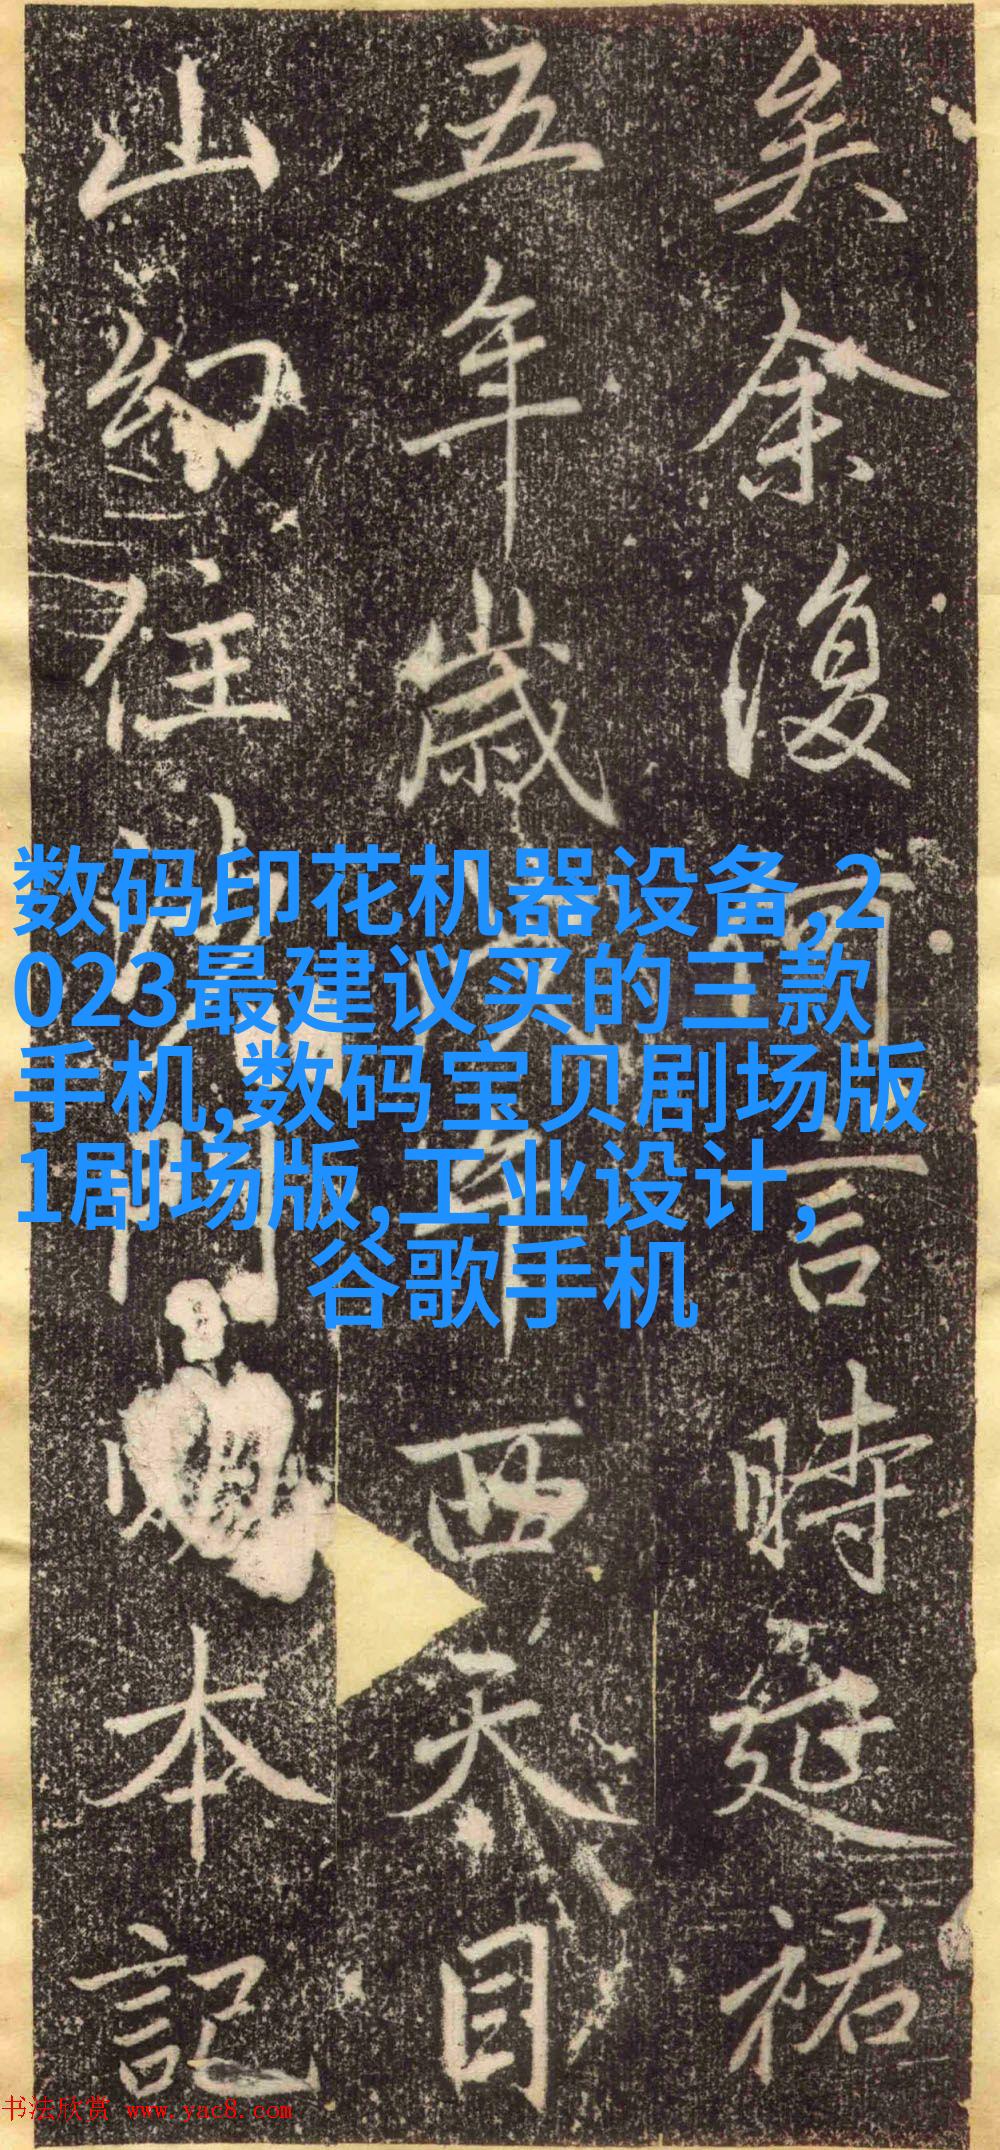 矣余復何言時延祐
五年歲午西天目
山幻住沙門本記
数码印花机器设备,2
023最建议买的三款
手机,数码宝贝剧场版
1剧场版,工业设计,
谷歌手机
书法欣赏 www.yac8.com